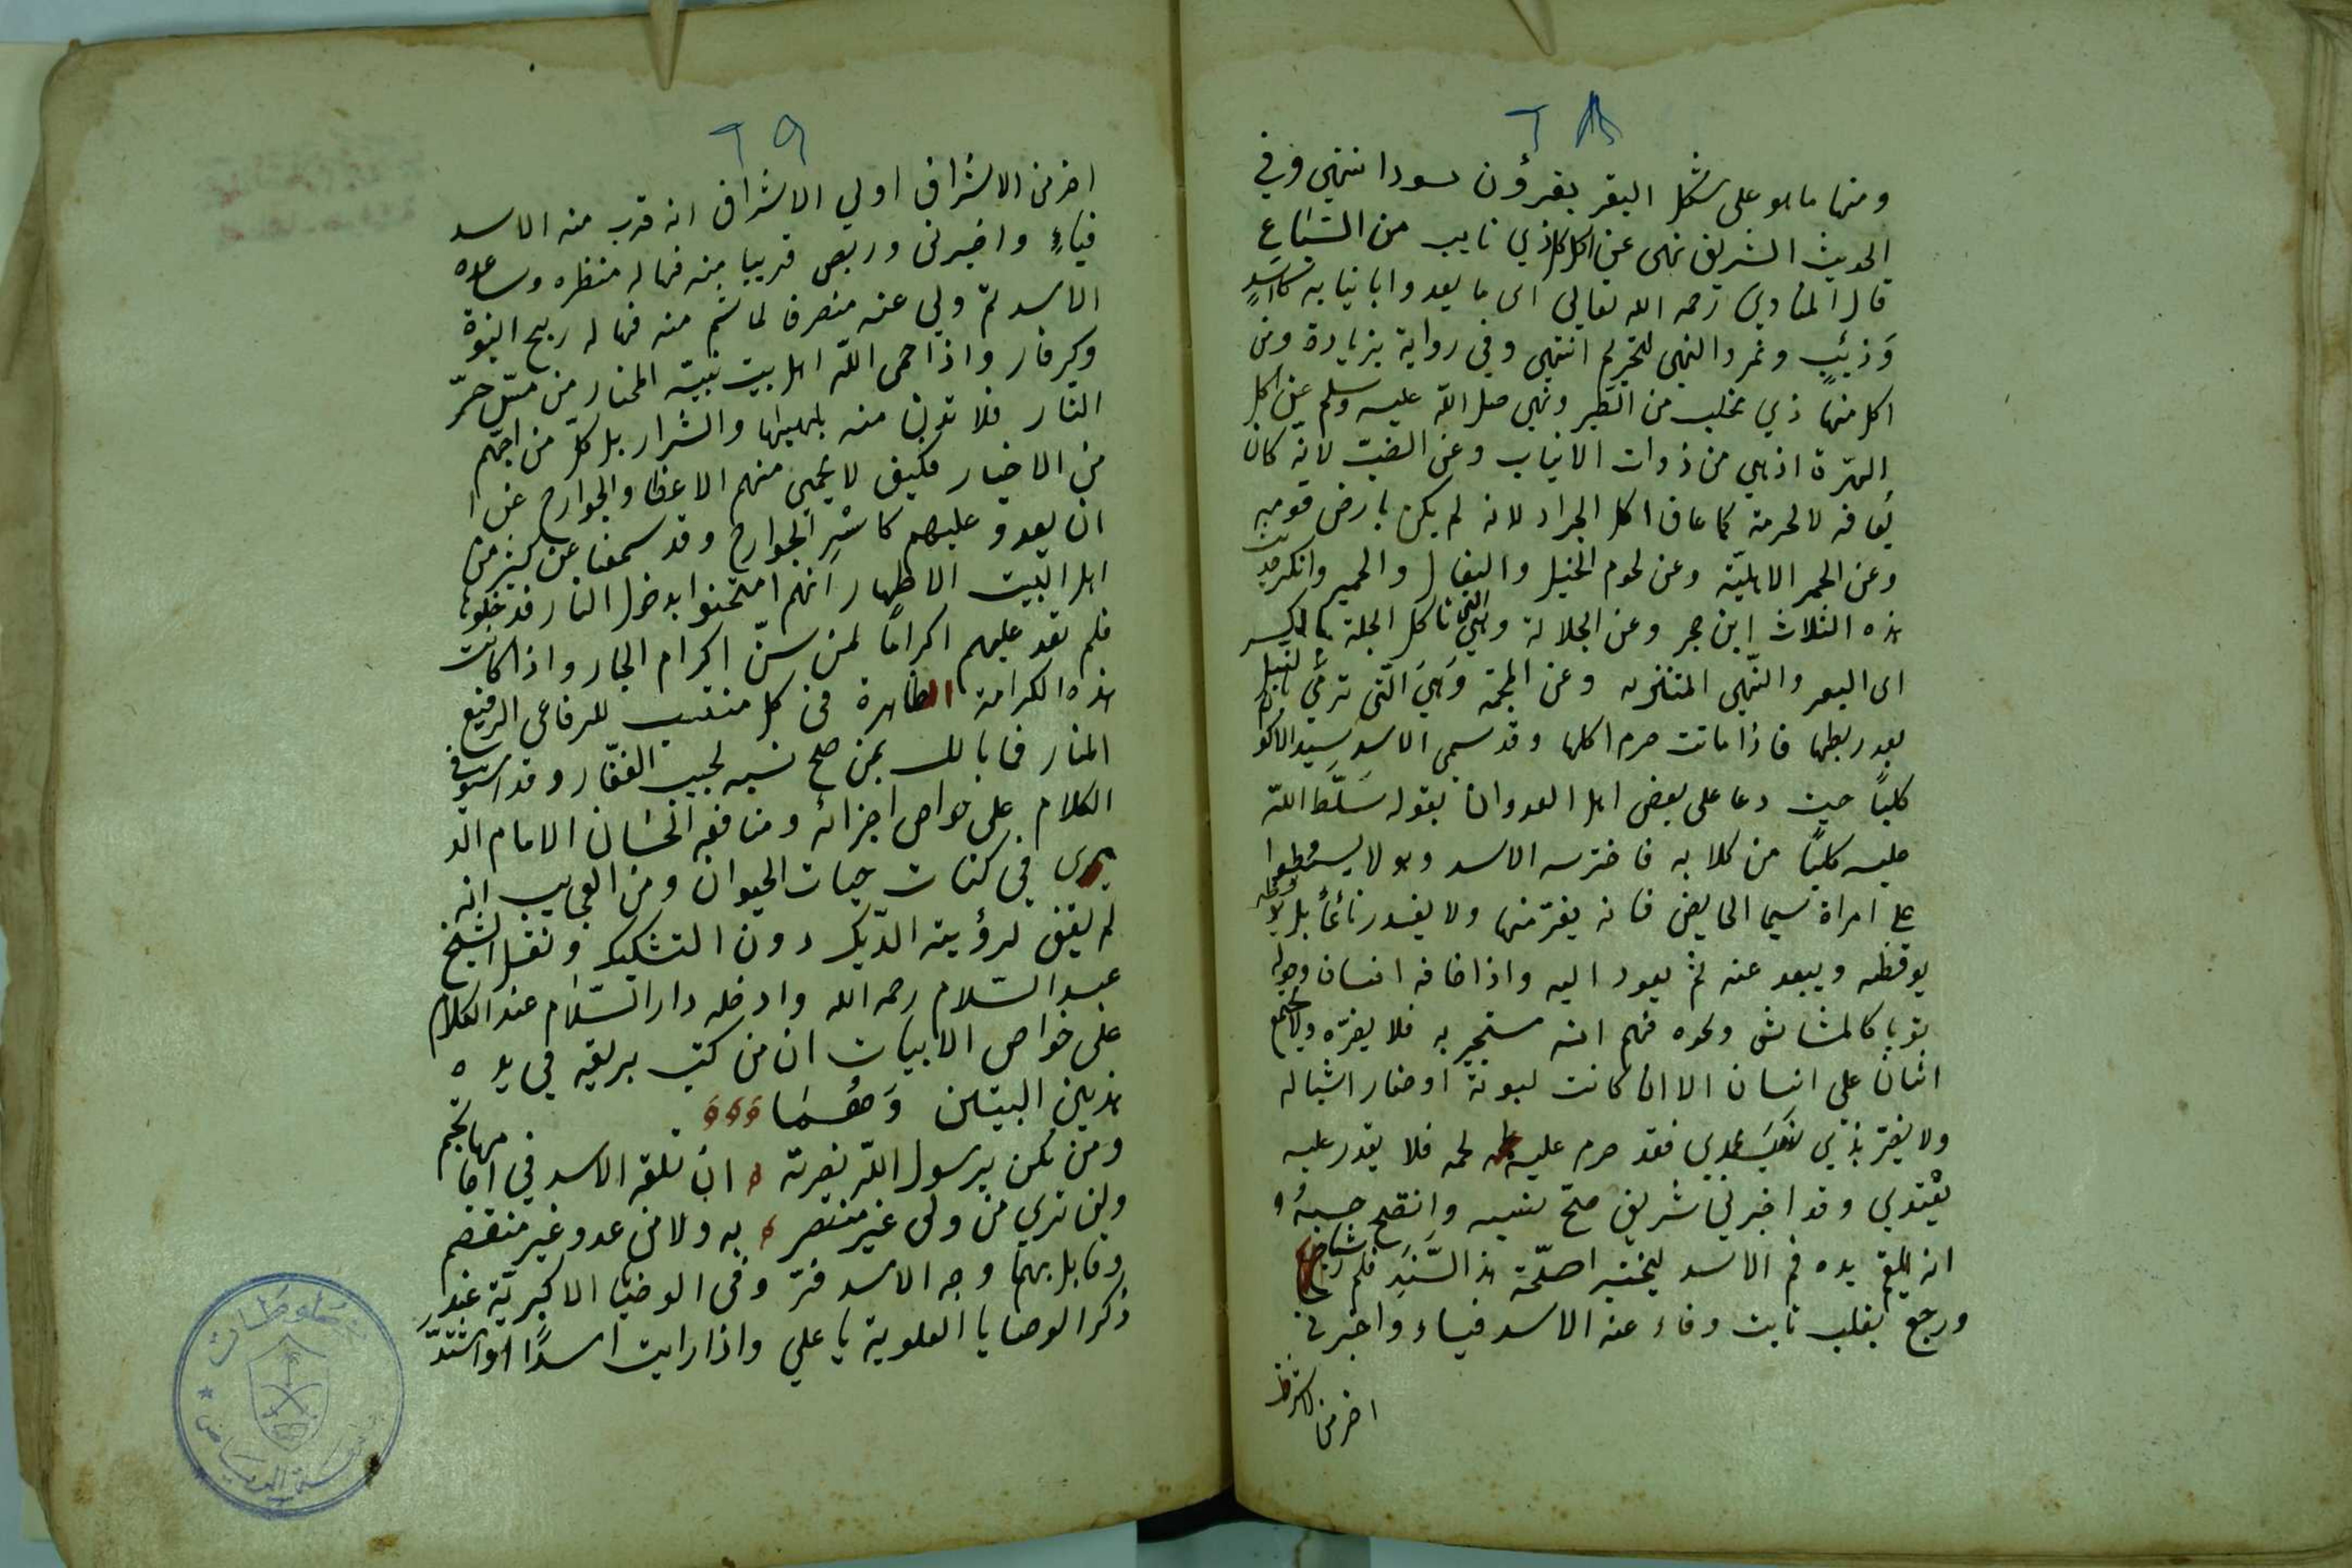 ٢٨
ومنها ما هو على شكل البقر بقرون سود انتهى وفي
الحديث الشريف نهى عن اكل كل ذي ناب من السباع
قال المناوي رحمه الله تعالى اى ما يعدوا بانيابه كاسدٍ
وَذئبٍ ونمر والنهى للتحريم انتهى وفي رواية بزيادة وعن
اكل منها ذي مخلب من الطير ونهى صلى الله عليه وسلم عن اكل
الهرّة اذ هي من ذوات الانياب وعن الضبّ لانه كان
يعافه لا لحرمة كما عاف اكل الجراد لانه لم يكن بارض قومه
وعن الحمر الاهليّة وعن لحوم الخيل والبغال والحمير وانكر حديث
هذه الثلاث ابن حجر وعن الجلالة وهي التي تاكل الجلة بالكسر
اى البعر والنّهى للتنزيه وعن المجثمة وَهيَ الّتى ترمى بالنبل
بعد ربطها فاذا ماتت حرم اكلها وقد سمى الاسد سيد الاكوان
كلبًا حيث دعا على بعض اهل العدوان بقوله سَلّط الله
عليه كلبًا من كلابه فافترسه الاسد وهو لا يسطوا
على امراة سيما الحايض فانه يفرّ منها ولا يغدر نائمًا بل
يوقظه ويبعد عنه ثم يعود اليه واذا خافه انسان وحول
ثوبا كالمشاش ونحوه فهم انه مستجير به فلا يضرّه ولا يجتمع
اثنان على انسان الا ان كانت لبونة او صغار اشباله
ولا يضرّ بذي نسب علوي فقد حرم عليه لحمه فلا يقدر عليه
يعتدي وقد اخبرني شريف صحّ نسبه وَاتضح حسبهُ
انه القم يده فم الاسد ليختبر اصحّة هذا السّند فلم
ورجع بقلب ثابت وفاء عنه الاسد فياء واخبرني
اخر من الاشراف
٢٩
اخر من الاشراف اولي الاشراق انه قرب منه الاسد
فياءٍ واخبرنى وربص قريبا منه فهاله منظره وساعده
الاسد ثم ولى عنه منصرفا لما شم منه فهاله ريح النبوة
وكر فار واذا حمى الله اهل بيت نبيّه المختار من مسّ حرّ
النار فلا تدن منه بلهيبها والشرار بل كلّ من احبّهم
من الاخيار فكيف لا يحمى منهم الاعضا والجوارح عن ا
ان يعدو عليهم كاشرِ الجوارح وقد سمعنا عن كثير من
اهل البيت الاطهار انهم امتحنوا بدخول النار فدخلوها
فلم تعد عليهم اكرامًا لمن سنّ اكرام الجار واذا كانت
هذه الكرامة الظاهرة في كل منتسب للرفاعى الرفيع
المنار فما بالك بمن صح نسبه لحبيب الغفّار وقد استوفى
الكلام على خواص اجزائه ومنافعه الحسان الامام الد
ميرى في كتاب حيات الحيوان ومن العجايب انه
له يقف لرؤية الدّيك دون التشكيك ونقل الشيخ
عبد السّلام رحمه الله وادخله دار السّلام عند الكلام
على خواص الابيات ان من كتب بريقه في يده
هذين البيتين وَهُمَا
ومن تكن برسول الله نصرته ان تلقه الاسد في اجامها تجم
ولن ترى من ولى غير منتصر به ولا من عدو غير منقصم
وقابل بهما وجه الاسد فرّ وفى الوصايا الاكبرية عند
ذكر الوصايا العلوية يا علي واذا رايت اسدًا واشتدّ
مخطوطات